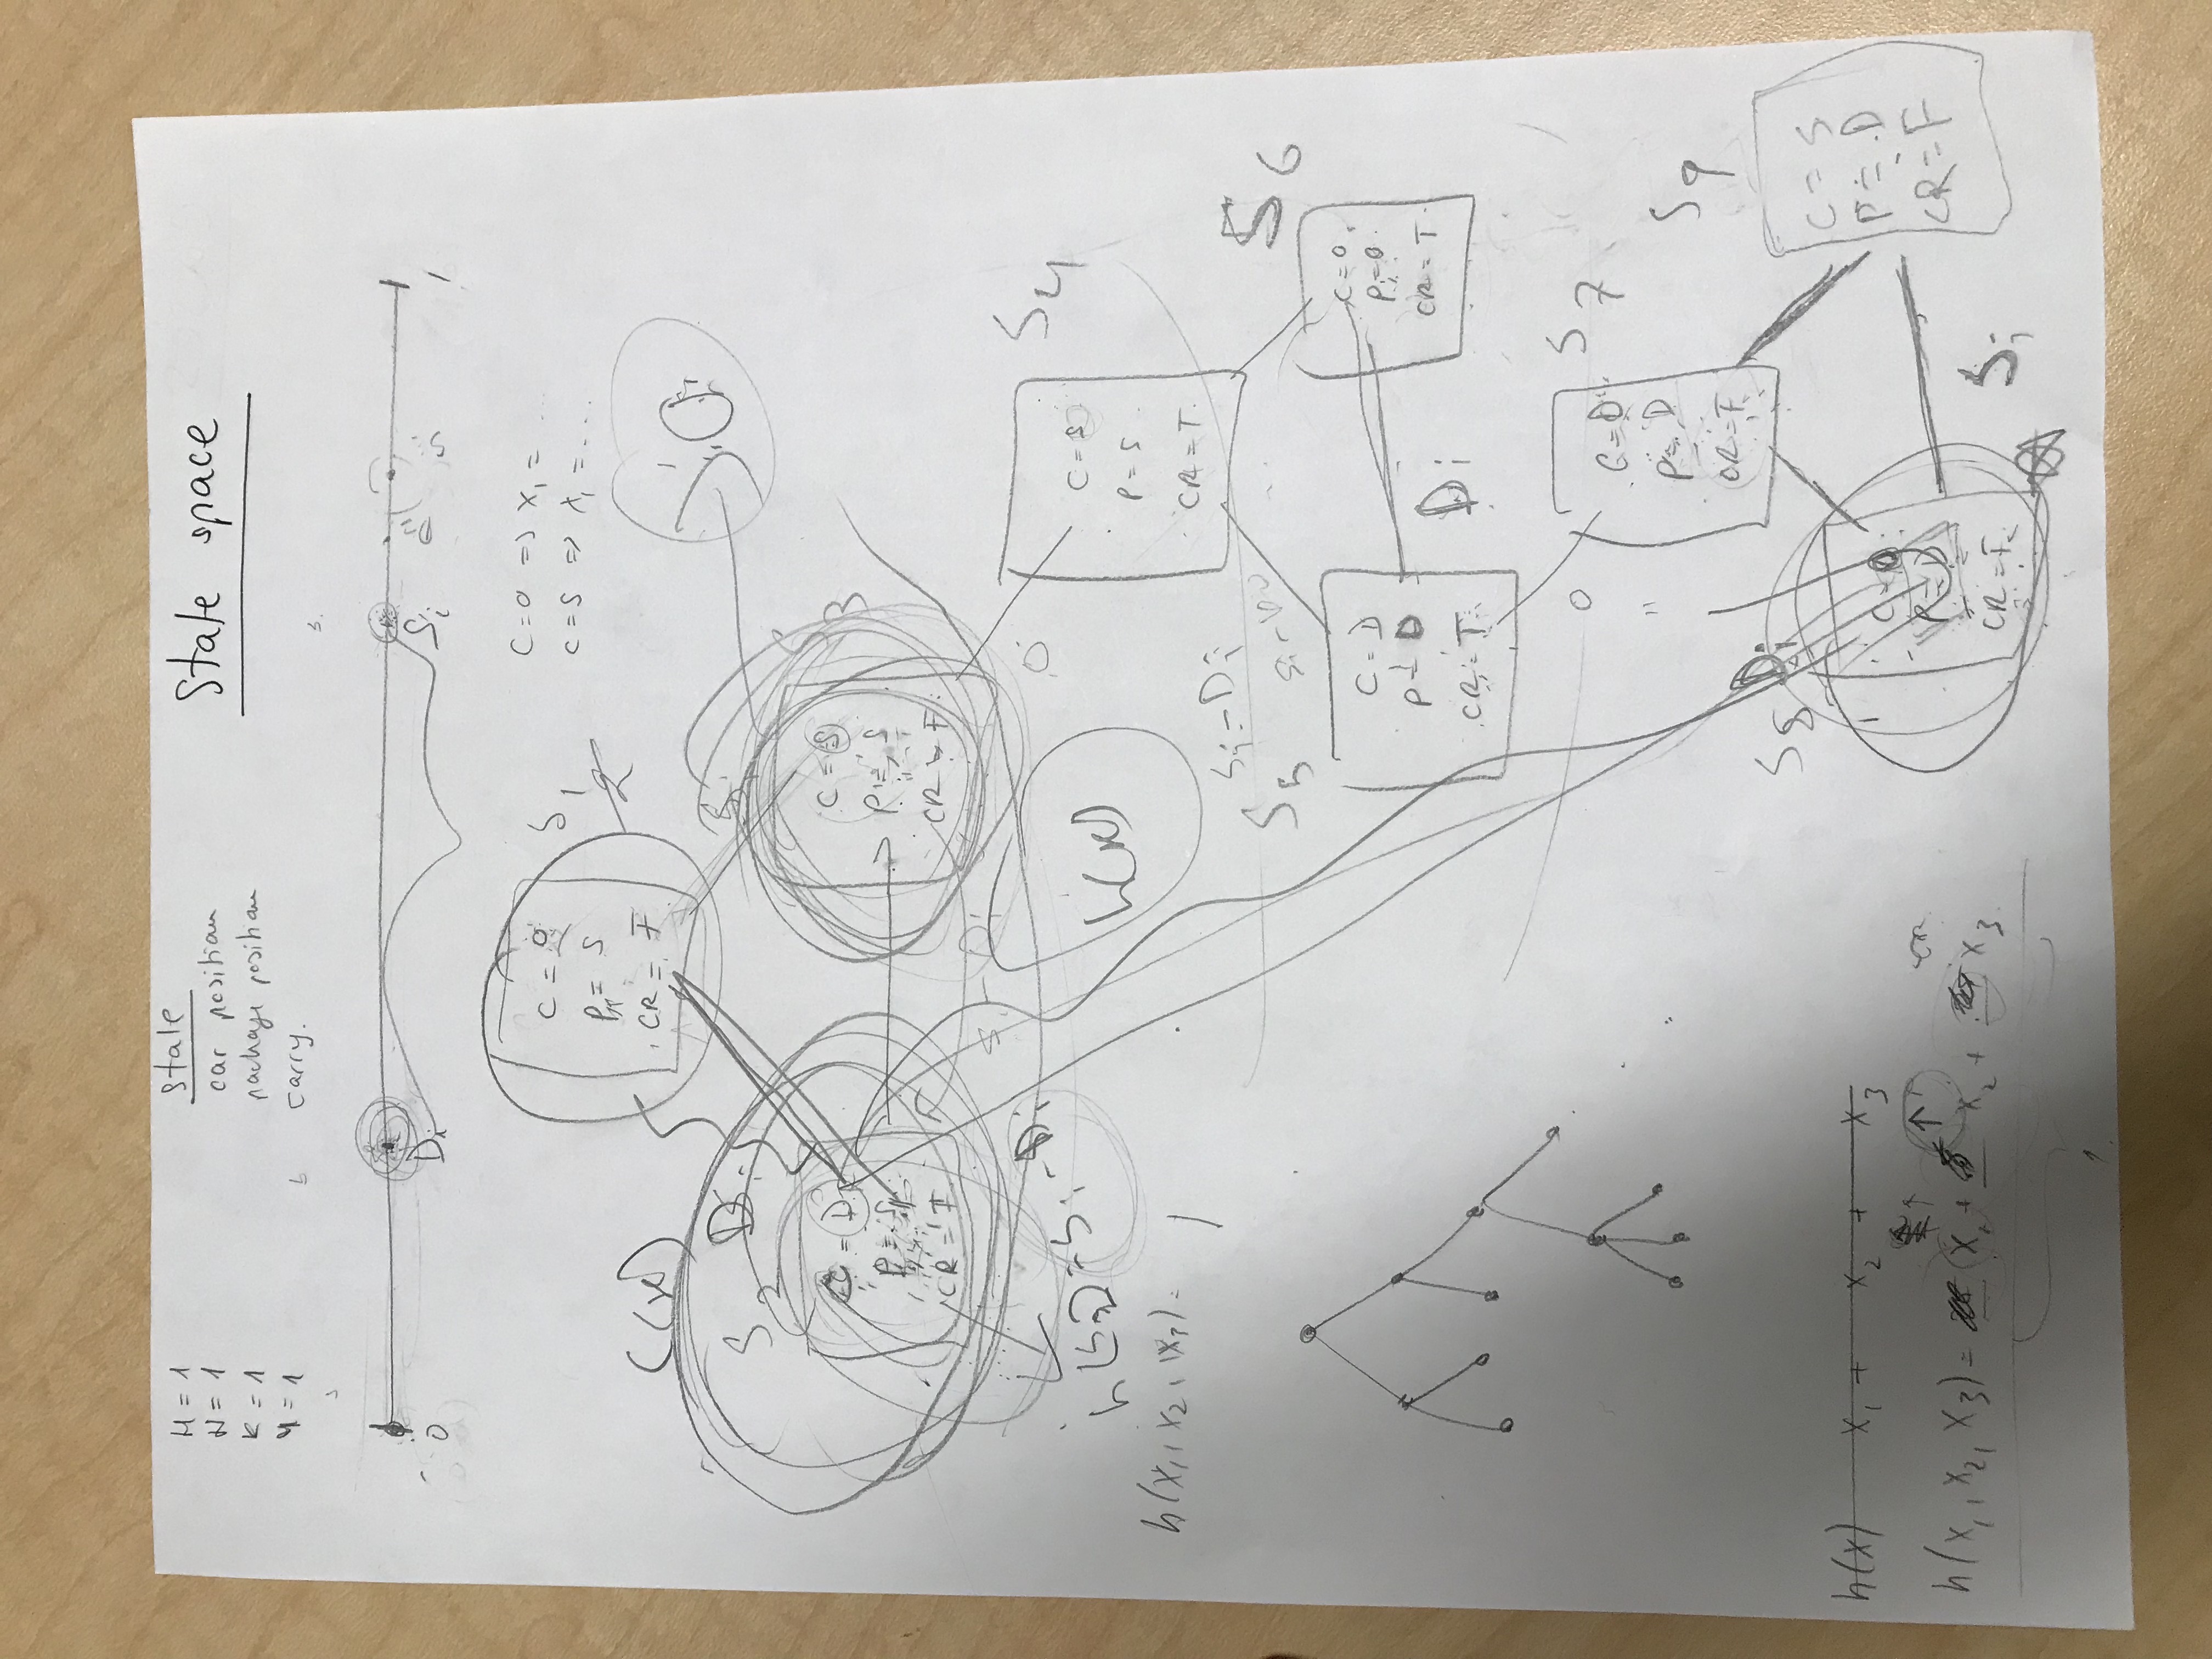 M = 1
N = 1
K = 1
Y = 1
State
car position
package position
carry.
State space
0
Di
Si
1
C = 0
P = S
CR = F
S1
2
C=0 => x1 = ...
C=S => x1 = ...
C(x)
S2
Di
C = D
P = S
CR = F
Si
S3
C = S
P = S
CR = F
h(S2) = Si - Di
h(x)
h(x1, x2, x3) =
0
S4
C = S
P = S
CR = T
Si - Di
S5
C = D
P = D
CR = T
S6
C = 0
P = 0
CR = T
Di
0
S7
C = D
P = D
CR = F
S8
Di
C = 0
P = D
CR = F
Si
S9
C = S
P = D
CR = F
h(x) x1 + x2 + x3
h(x1, x2, x3) = x1 + x2 + x3